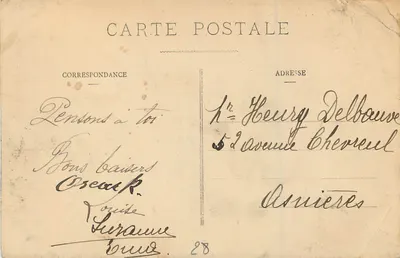 CARTE POSTALE
CORRESPONDANCE
Pensons à toi
Bons baisers
Oscar
Louise
Suzanne
ADRESSE
Henry Delbauve
52 avenue Chevreul
Asnières
28